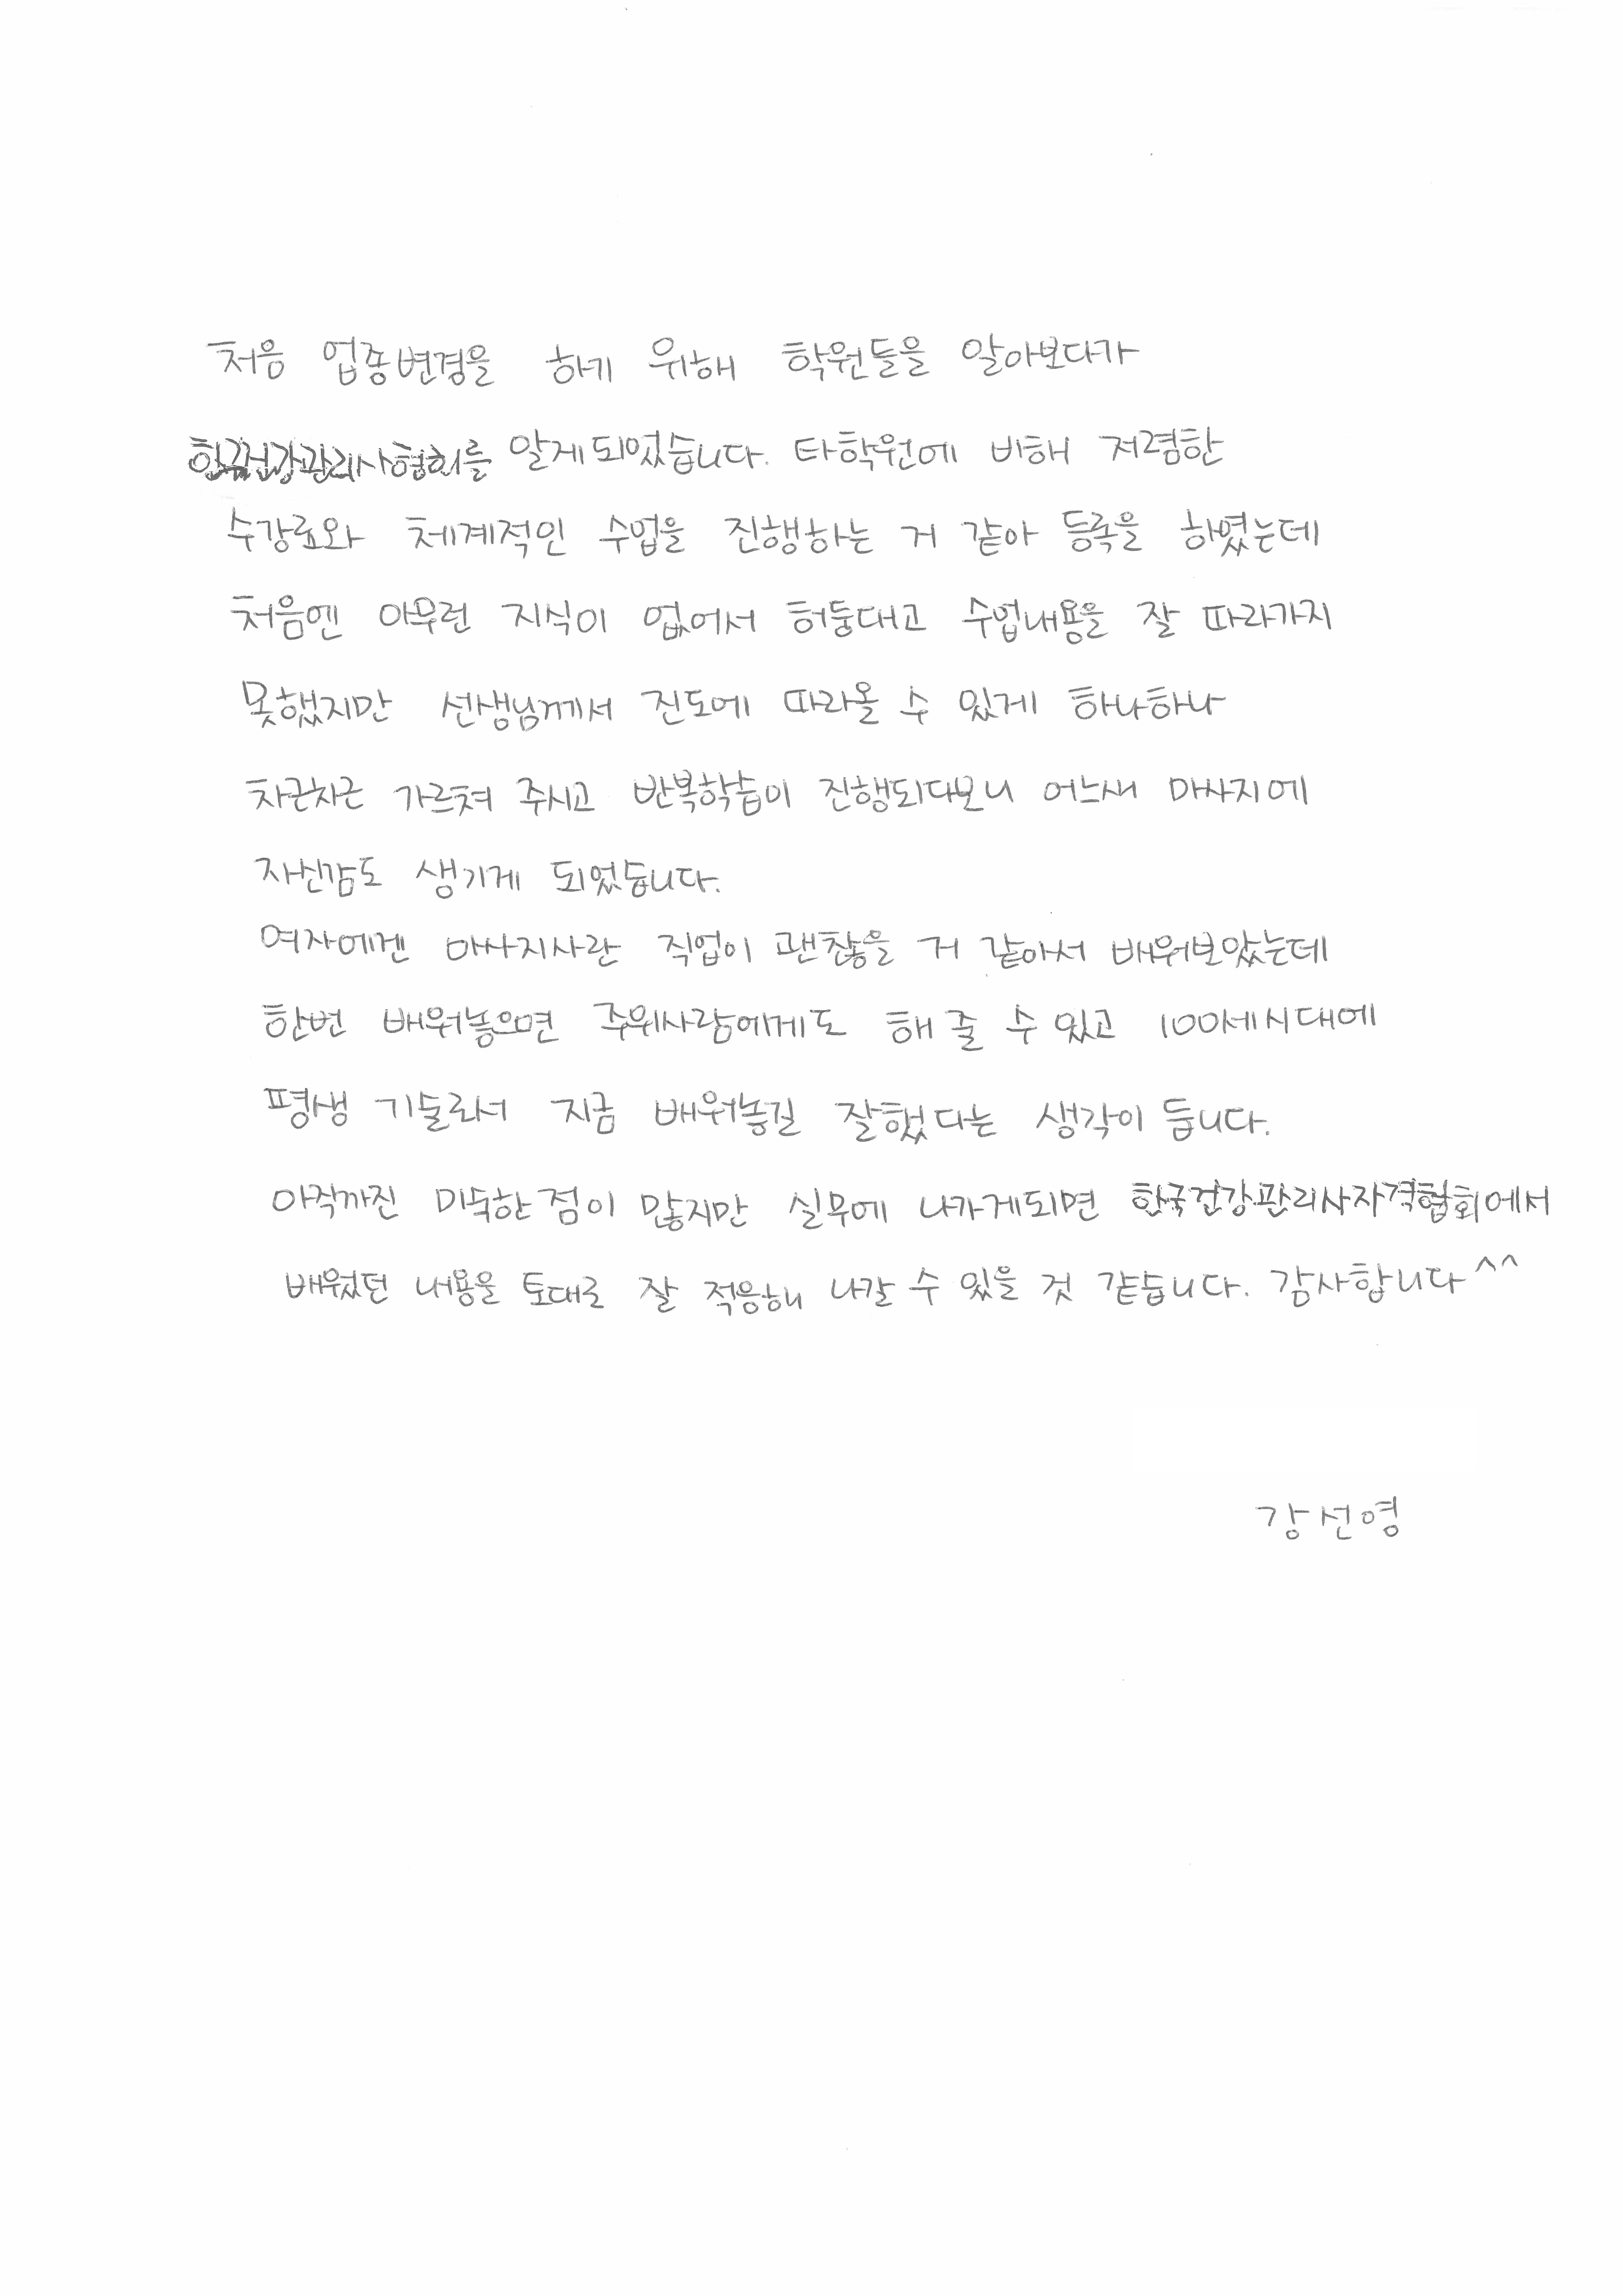 처음 업종변경을 하기 위해 학원들을 알아보다가
한국건강관리사협회를 알게되었습니다. 타학원에 비해 저렴한
수강료와 체계적인 수업을 진행하는 거 같아 등록을 하였는데
처음엔 아무런 지식이 없어서 허둥대고 수업내용을 잘 따라가지
못했지만 선생님께서 진도에 따라올 수 있게 하나하나
차근차근 가르쳐 주시고 반복학습이 진행되다보니 어느새 마사지에
자신감도 생기게 되었습니다.
여자에겐 마사지사란 직업이 괜찮을 거 같아서 배워보았는데
한번 배워놓으면 주위사람에게도 해 줄 수 있고 100세시대에
평생 기술라서 지금 배워놓길 잘했다는 생각이 듭니다.
아직까진 미숙한 점이 많지만 실무에 나가게되면 한국건강관리사자격협회에서
배웠던 내용을 토대로 잘 적응해 나갈 수 있을 것 같습니다. 감사합니다^^
강선영